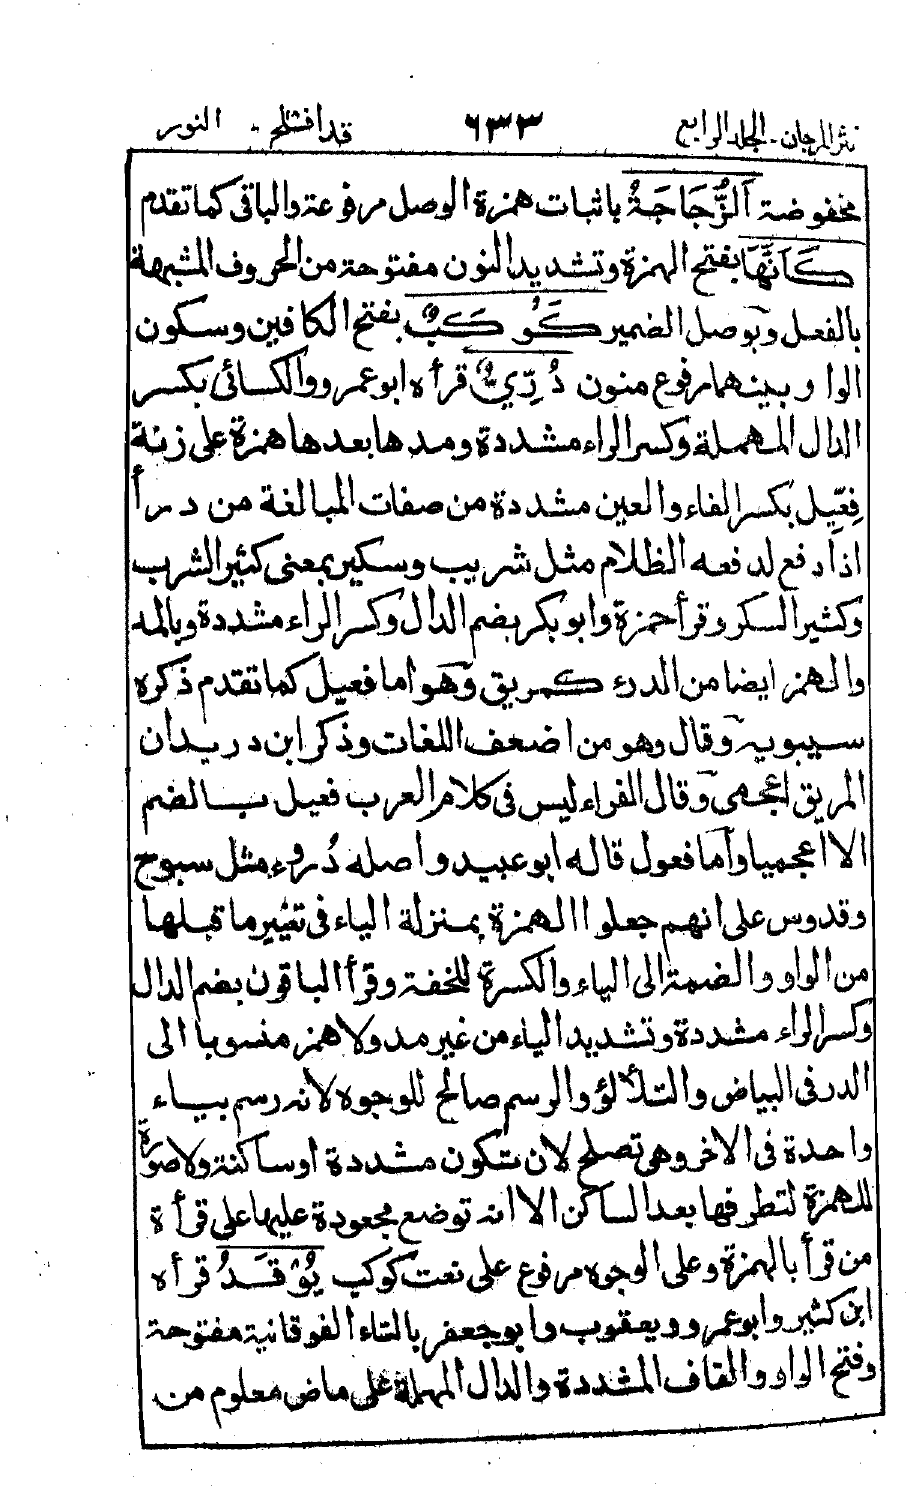 نثر المرجان - الجلد الرابع ٦٣٣ قد افلح - النور
مخفوضة اَلزُّجَاجَةُ باثبات همزة الوصل مرفوعة والباقى كما تقدم
كَاَنَّهَا بفتح الهمزة وتشديد النون مفتوحة من الحروف المشبهة
بالفعل وبوصل الضمير كَوْكَبٌ بفتح الكافين وسكون
الواو بينهما مرفوع منون دُرِّيٌّ قرأه ابو عمرو والكسائى بكسر
الدال المهملة وكسر الراء مشددة ومدها بعدها همزة على زنة
فِعِّيل بكسر الفاء والعين مشددة من صفات المبالغة من درأ
اذا دفع لدفعه الظلام مثل شريب وسكير بمعنى كثير الشرب
وكثير السكر وقرأ حمزة وابو بكر بضم الدال وكسر الراء مشددة وبالمد
والهمز ايضا من الدرء كمريق وهو اما فعيل كما تقدم ذكره
سيبويه وقال وهو من اضعف اللغات وذكر ابن دريد ان
المريق اعجمى وقال الفراء ليس فى كلام العرب فعيل بالضم
الا اعجميا واما فعول قاله ابو عبيد واصله دُروء مثل سبوح
وقدوس على انهم جعلوا الهمزة بمنزلة الياء فى تغيير ما قبلها
من الواو والضمة الى الياء والكسرة للخفة وقرأ الباقون بضم الدال
وكسر الراء مشددة وتشديد الياء من غير مد ولا همز منسوبا الى
الدر فى البياض والتلألؤ والرسم صالح للوجوه لانه رسم بياء
واحدة فى الاخر وهى تصلح لان تكون مشددة او ساكنة ولا صورة
للهمزة لتطرفها بعد الساكن الا انه توضع مجعودة عليها على قرأة
من قرأ بالهمزة وعلى الوجوه مرفوع على نعت كوكب يُوْقَدُ قرأه
ابن كثير وابو عمرو ويعقوب وابو جعفر بالتاء الفوقانية مفتوحة
وفتح الواو والقاف المشددة والدال المهملة على ماض معلوم من